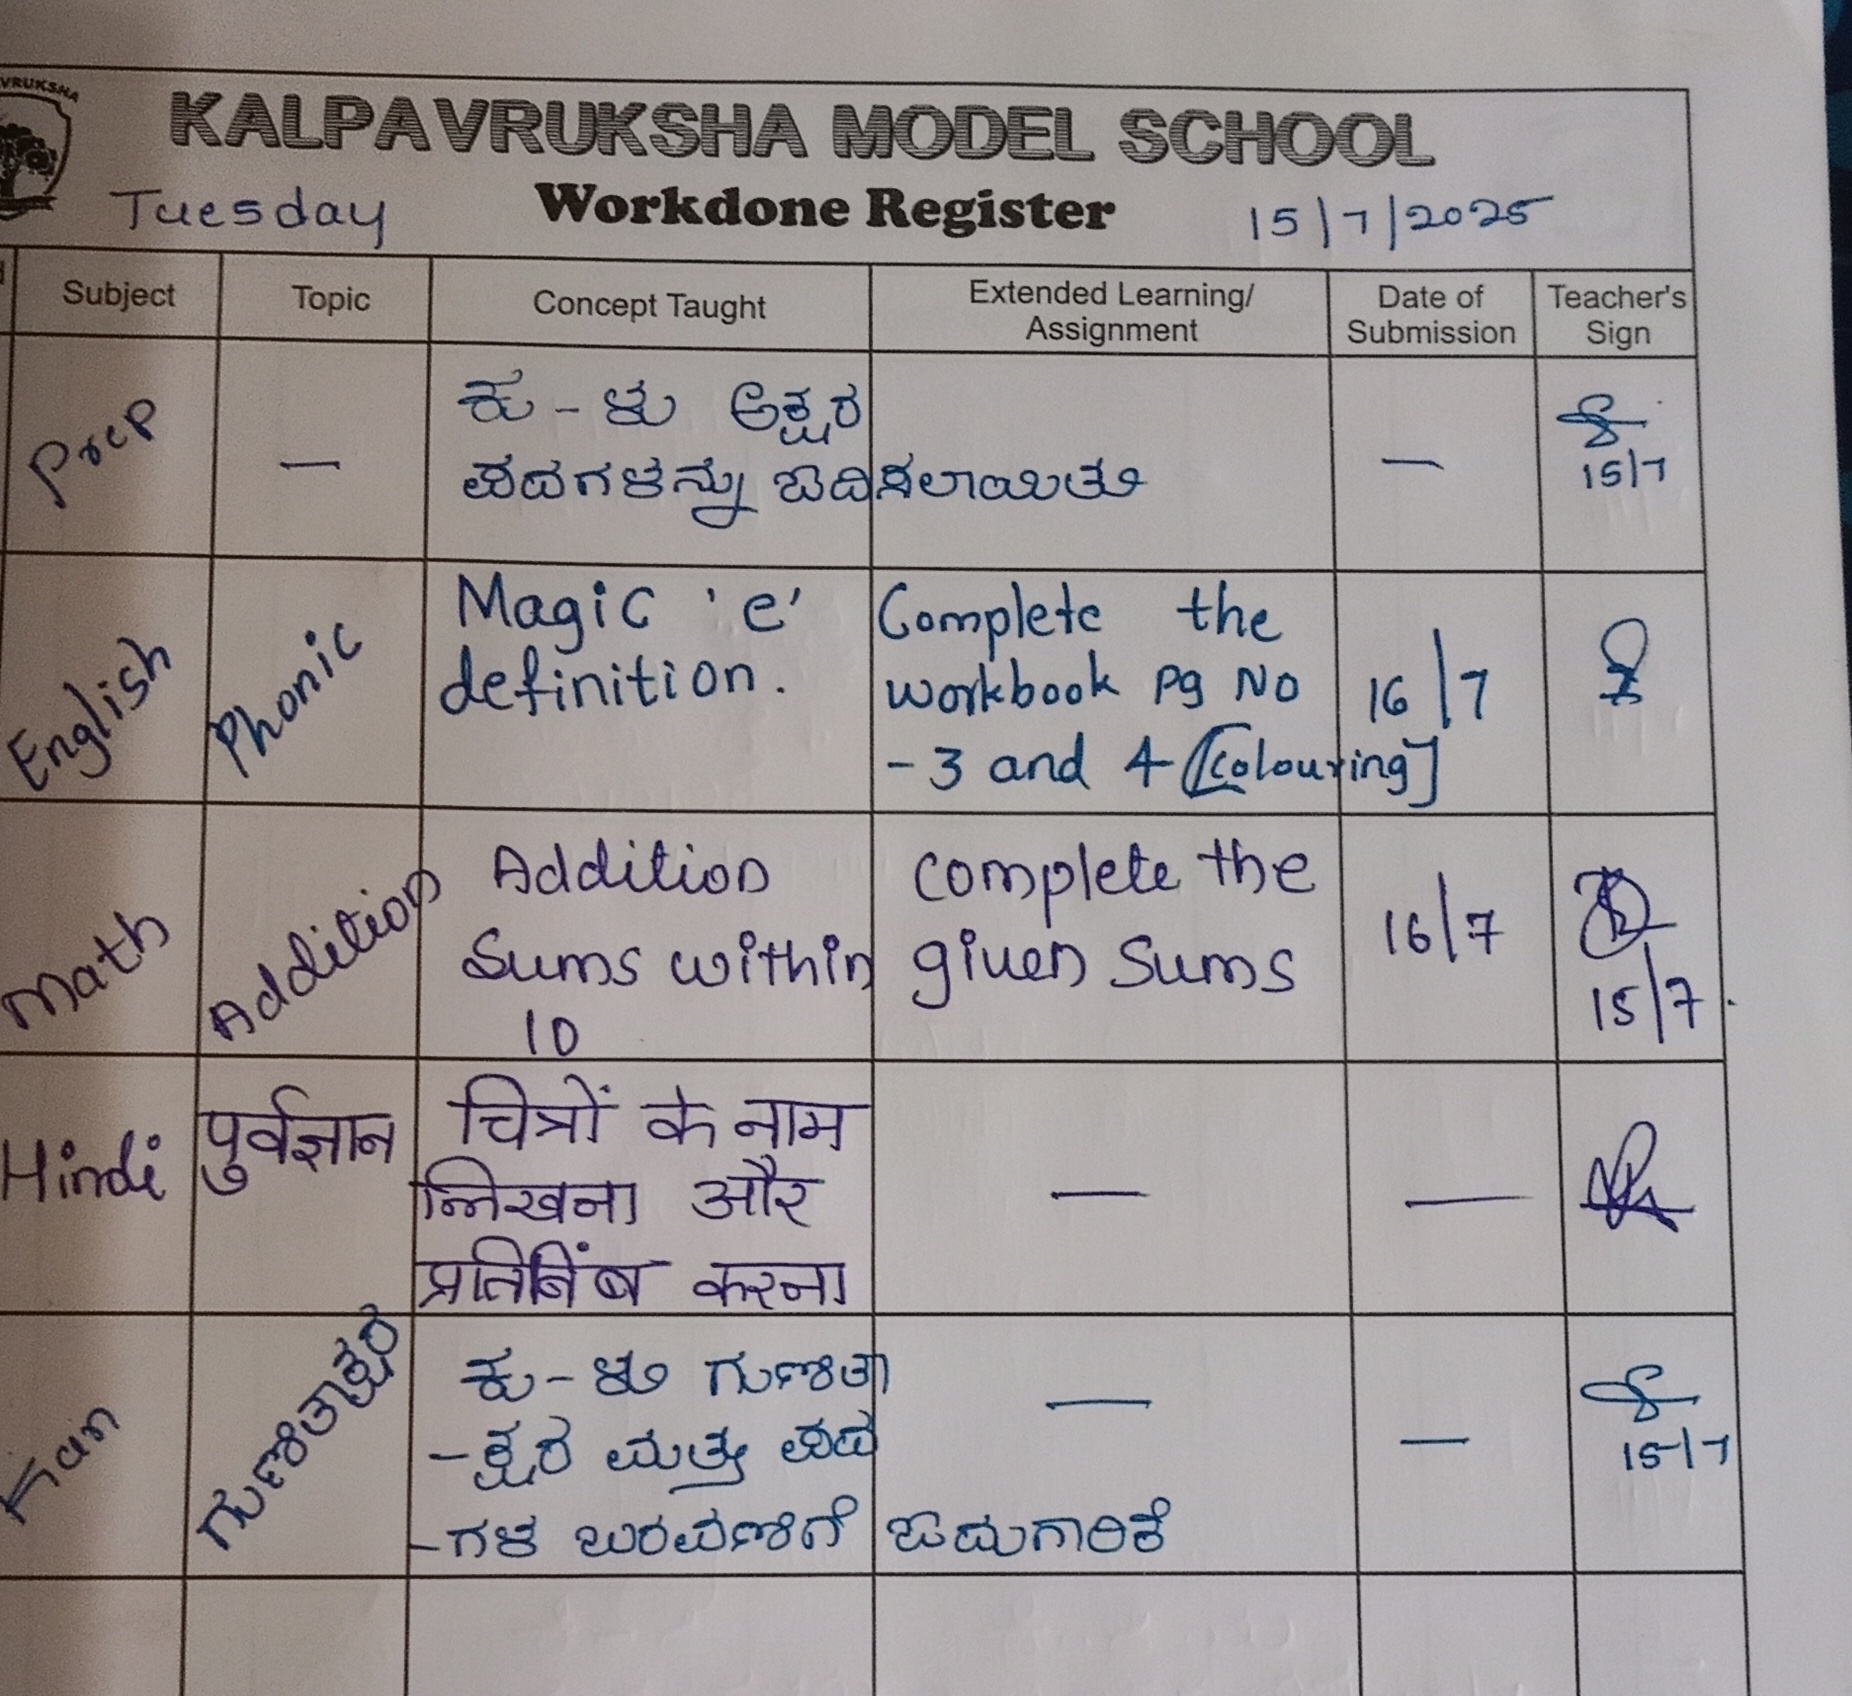 VRUKSHA
KALPAVRUKSHA MODEL SCHOOL
Tuesday Workdone Register 15/7/2025
Subject Topic Concept Taught Extended Learning/ Assignment Date of Submission Teacher's Sign
Prep — ಕು - ಳು ಅಕ್ಷರ — 15/7
ಪದಗಳನ್ನು ಓದಿಸಲಾಯಿತು
English Phonic Magic 'e' Complete the
definition. workbook pg No 16/7
- 3 and 4 [Colouring]
Math Addition Addition complete the 16/7
Sums within given Sums 15/7
10
Hindi पुर्वज्ञान चित्रों के नाम — —
लिखना और
प्रतिबिंब करना
Kan ಗುಣಿತಾಕ್ಷರ ಕು - ಳು ಗುಣಿತಾ — — 15/7
- ಕ್ಷರ ಮತ್ತು ಪದ
- ಗಳ ಬರವಣಿಗೆ ಓದುಗಾರಿಕೆ